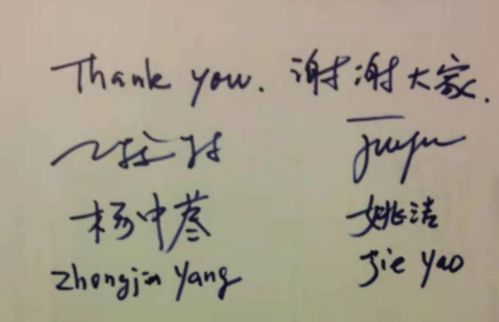 Thank you. 谢谢大家.
杨中荩 姚洁
Zhongjin Yang Jie Yao